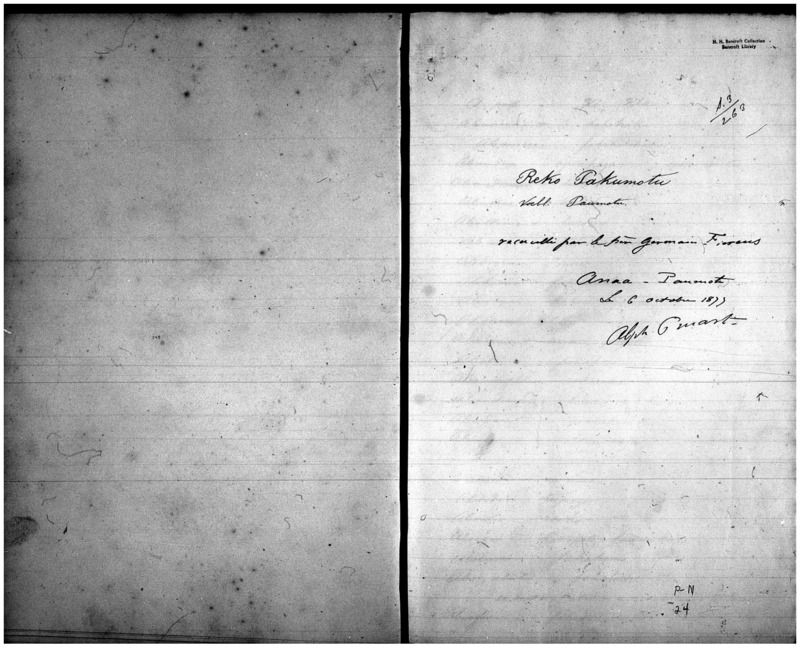 H. H. Bancroft Collection
Bancroft Library
A.3
263
Reko Pakumotu
Vocab. Paumotu.
recueilli par le père Germain
Anaa - Paumotu
Le 6 octobre 1877
Alph Pinart
P-N
24